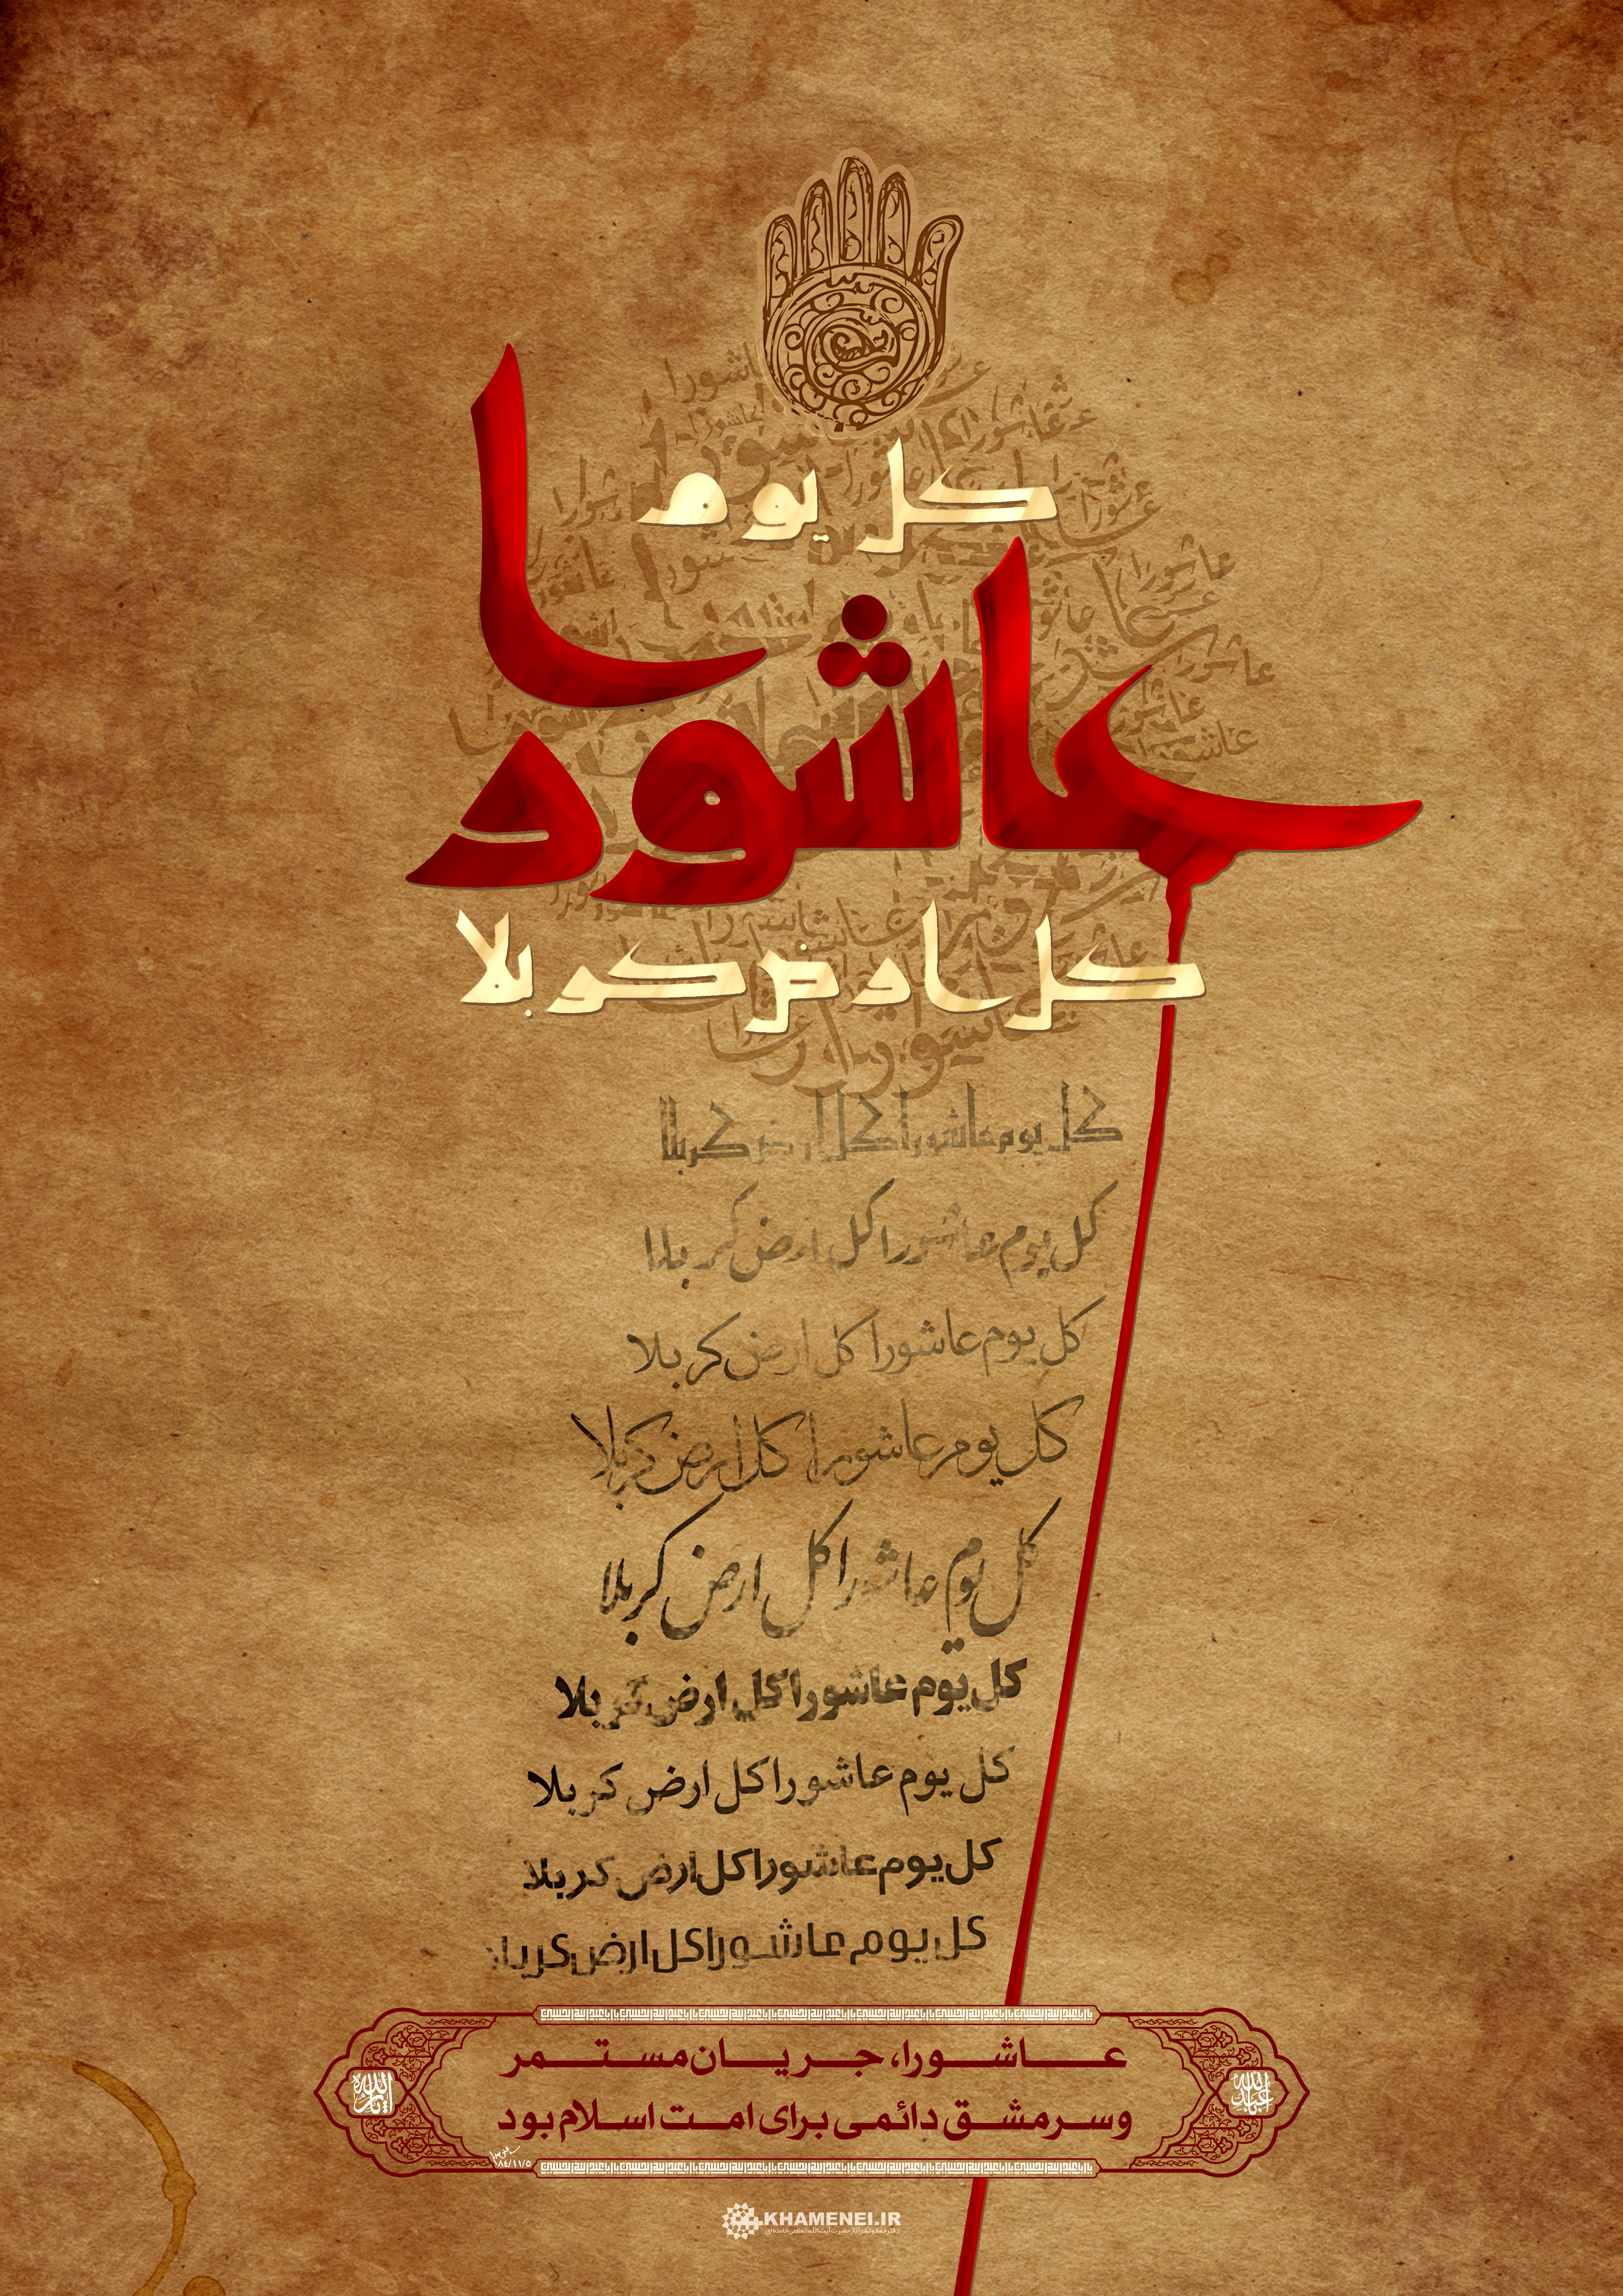 کل یوم
عاشورا
کل ارض کربلا
کل یوم عاشورا کل ارض کربلا
کل یوم عاشورا کل ارض کربلا
کل یوم عاشورا کل ارض کربلا
کل یوم عاشورا کل ارض کربلا
کل یوم عاشورا کل ارض کربلا
کل یوم عاشورا کل ارض کربلا
کل یوم عاشورا کل ارض کربلا
کل یوم عاشورا کل ارض کربلا
کل یوم عاشورا کل ارض کربلا
عاشورا، جریان مستمر
و سرمشق دائمی برای امت اسلام بود
۸۴/۱۱/۵
KHAMENEI.IR
دفتر حفظ و نشر آثار حضرت آیت‌الله العظمی خامنه‌ای